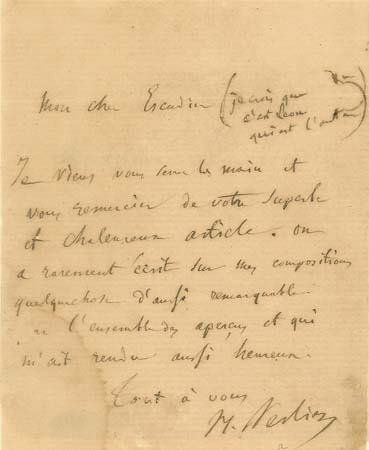 Mon cher Escudier (je crois que
c'est Léon
qui est l'auteur)
Je viens vous serrer la main et
vous remercier de votre superbe
et chaleureux article. on
a rarement écrit sur mes compositions
quelquechose d'aussi remarquable
l'ensemble des aperçus et qui
m'ait rendu aussi heureux.
Tout à vous
H. Berlioz